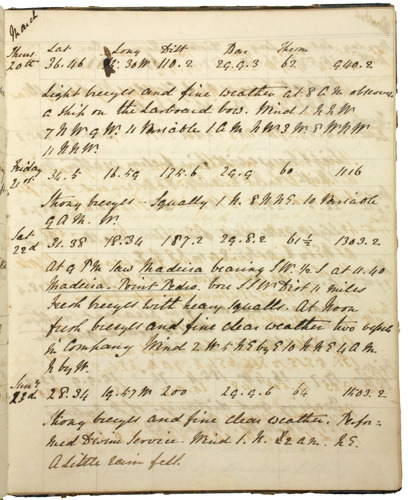 March
Thurs Lat Long Dist Bar Therm
20th 36.46 15.30W 110.2 29.9.3 62 940.2
Light breezes and fine weather at 8 A.M. observed
a ship on the Larboard bow. Wind 1 N.N.W
7 N.W. 9 W. 11 Variable 1 A.M. N.W. 3 W. 8 W.N.W
11 N.N.W.
Friday
21st 34.5 16.59 175.6 29.9 60 1116
Strong breezes - Squally 1 N. 8 N.N.E. 10 Variable
9 A.M. W.
Sat
22d 31.38 18.34 187.2 29.8.2 61½ 1303.2
At 9 P.M. saw Madeira bearing S.W. ½ S at 11.40
Madeira - Point Pedro. bore S.S.W. Dist 11 miles
Fresh breezes with heavy squalls. At Noon
fresh breezes and fine clear weather two vessels
in Company Wind 2 W. 5 N.E by E 10 N.N.E 4 A.M.
N by W.
Sun
23d 28.34 19.57W 200 29.9.6 64 1503.2
Strong breezes and fine clear weather. Perfor-
med Divine Service. Wind 1. N. 2 a.m. N.E.
A little rain fell.